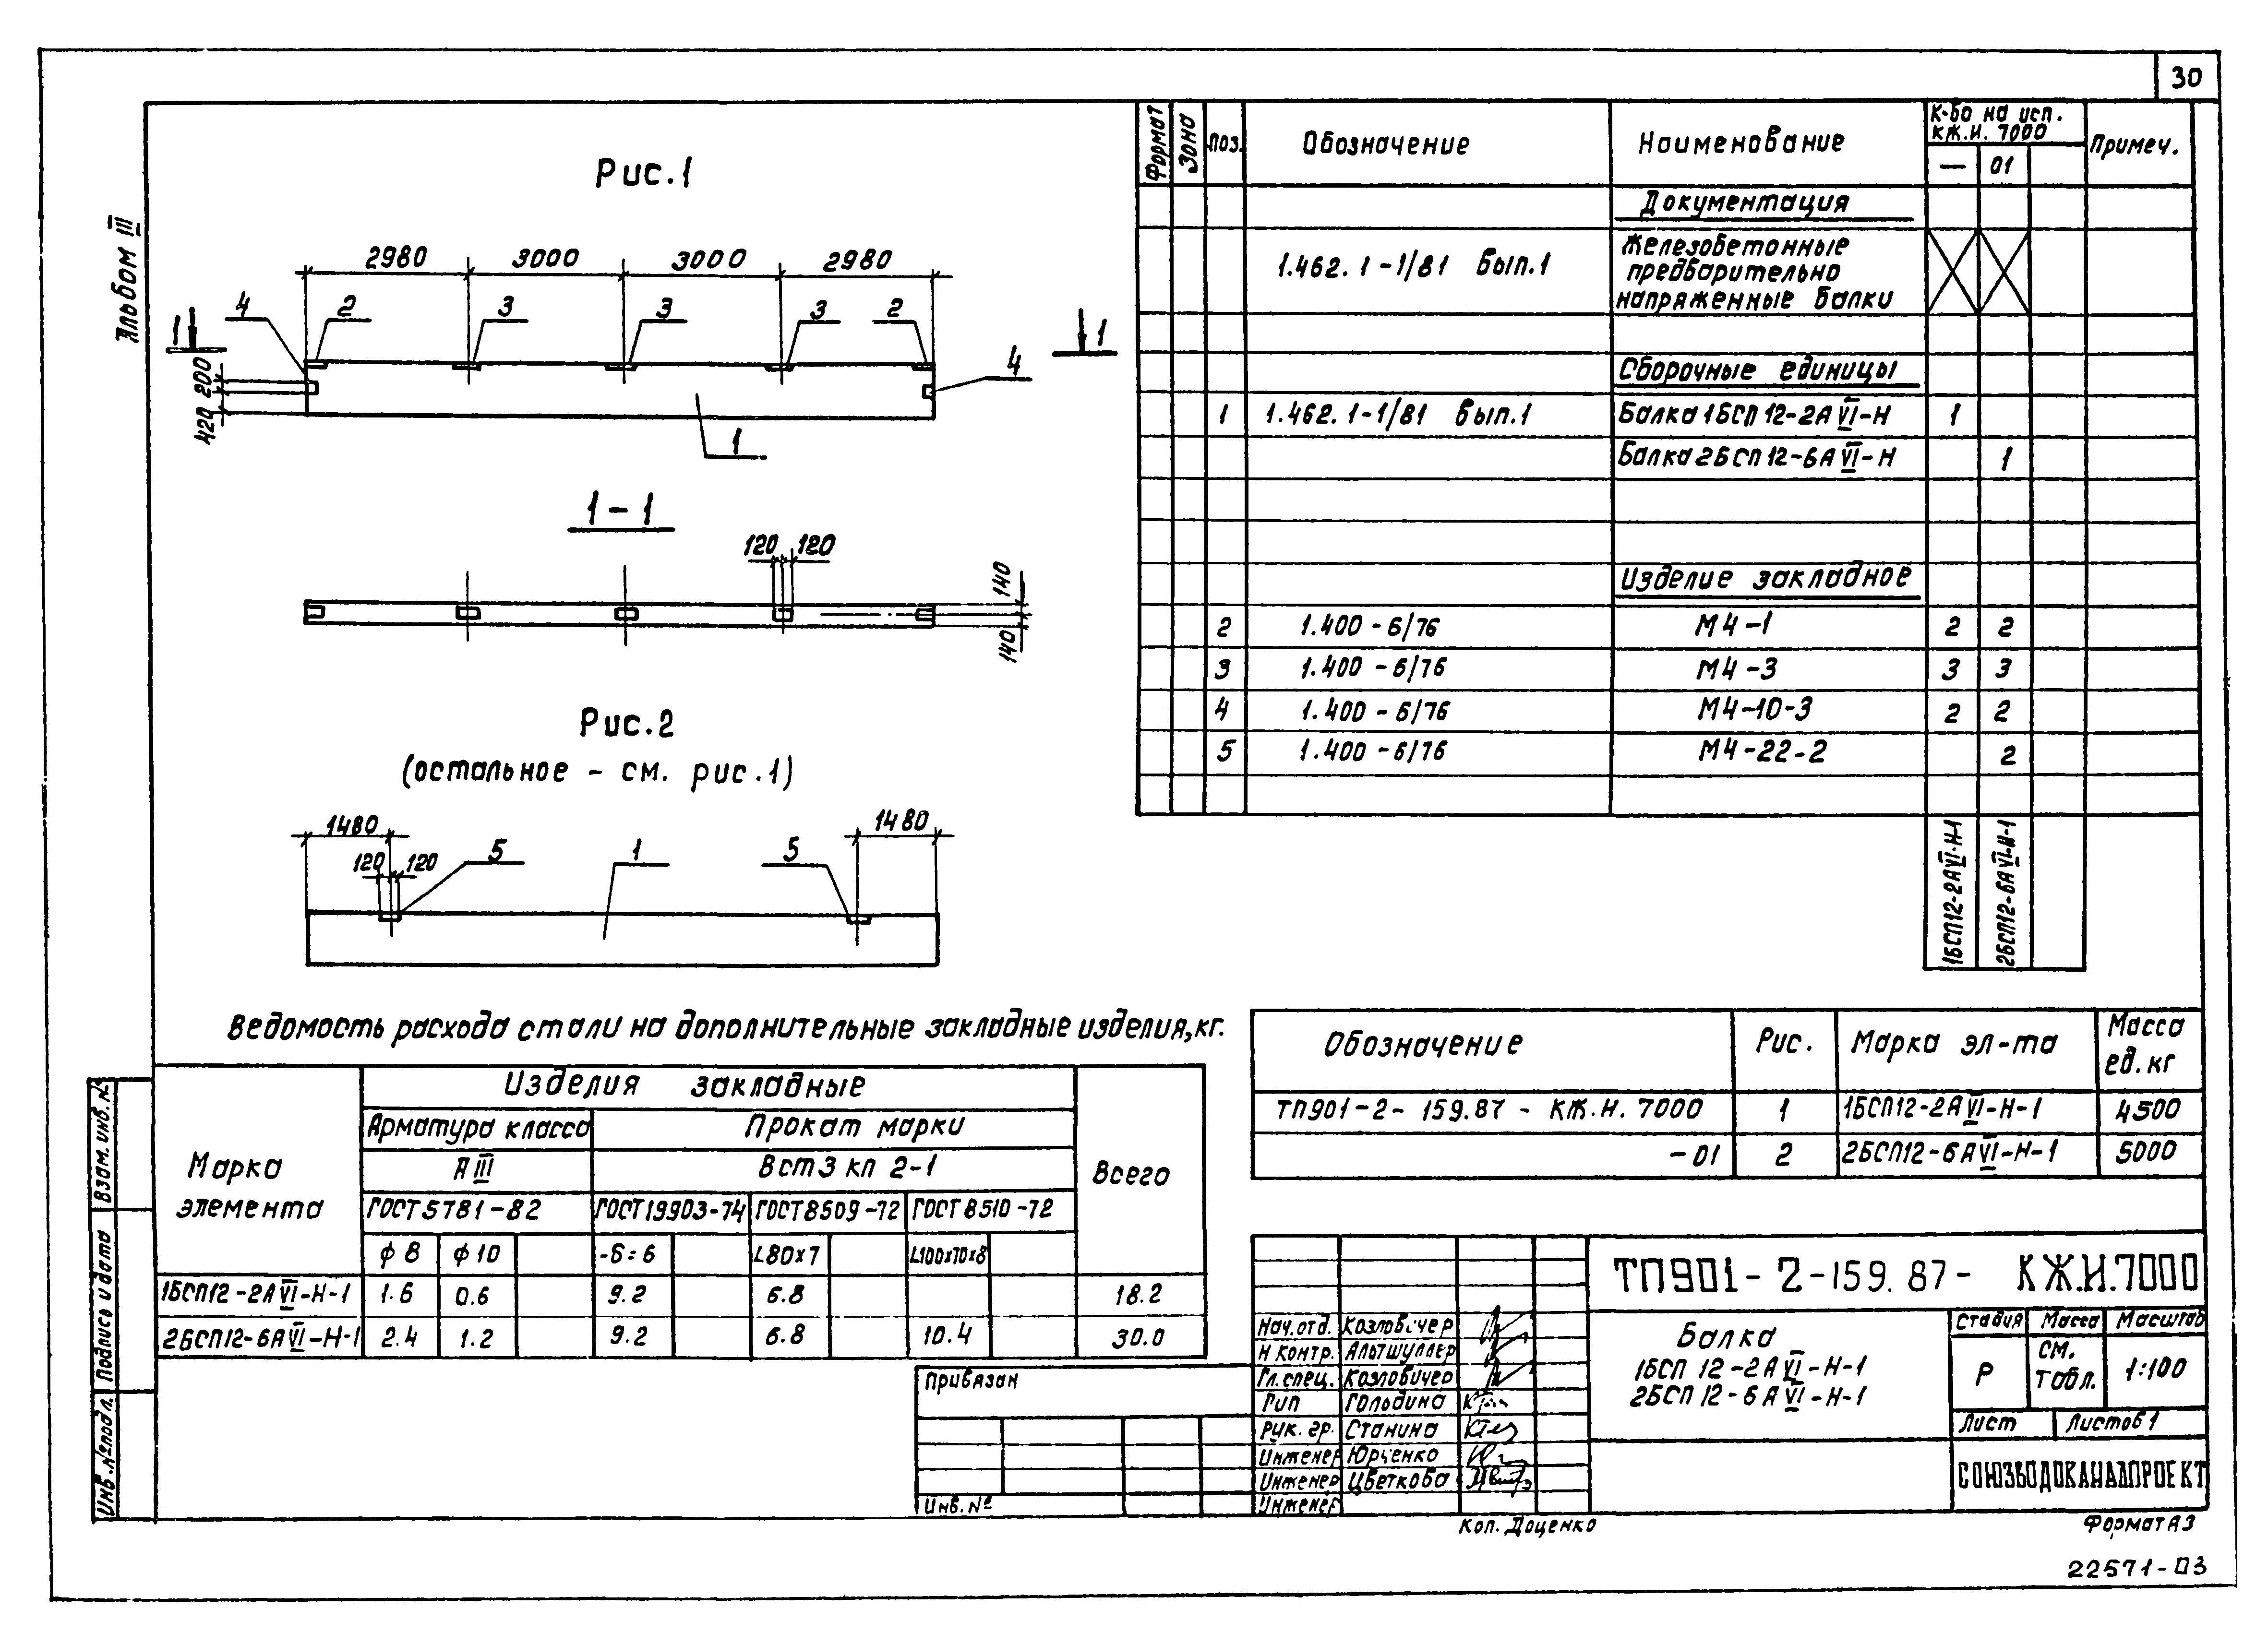 30
Альбом III
Рис.1
2980 3000 3000 2980
4 2 3 3 3 2
1 1
200
420
4
1
1-1
120 120
140
140
Рис.2
(остальное - см. рис.1)
1480 1480
120 120 5 1 5
Формат Зона Поз. Обозначение Наименование К-во на исп. КЖ.И.7000 Примеч.
— 01
Документация
1.462.1-1/81 вып.1 Железобетонные
предварительно
напряженные балки
Сборочные единицы
1 1.462.1-1/81 вып.1 Балка 1БСП12-2АVI-Н 1
Балка 2БСП12-6АVI-Н 1
Изделие закладное
2 1.400-6/76 М4-1 2 2
3 1.400-6/76 М4-3 3 3
4 1.400-6/76 М4-10-3 2 2
5 1.400-6/76 М4-22-2 2
1БСП12-2АVI-Н-1
2БСП12-6АVI-Н-1
Ведомость расхода стали на дополнительные закладные изделия, кг.
Марка элемента Изделия закладные Всего
Арматура класса Прокат марки
АIII Вст3кп 2-1
ГОСТ5781-82 ГОСТ19903-74 ГОСТ8509-72 ГОСТ8510-72
ф8 ф10 -б=6 L80х7 L100х70х8
1БСП12-2АVI-Н-1 1.6 0.6 9.2 6.8 18.2
2БСП12-6АVI-Н-1 2.4 1.2 9.2 6.8 10.4 30.0
Обозначение Рис. Марка эл-та Масса ед.кг
ТП901-2-159.87-КЖ.И.7000 1 1БСП12-2АVI-Н-1 4500
-01 2 2БСП12-6АVI-Н-1 5000
Взам.инв.№
Подпись и дата
Инв.№подл.
Привязан
Инв.№
ТП901-2-159.87- КЖ.И.7000
Нач.отд. Козловичер
Н контр. Альтшуллер
Гл.спец. Козловичер
Гип Гольдина
Рук.гр. Станина
Инженер Юрченко
Инженер Цветкова
Инженер
Балка
1БСП 12-2АVI-Н-1
2БСП 12-6АVI-Н-1
Стадия Масса Масштаб
Р см. табл. 1:100
Лист Листов 1
СОЮЗВОДОКАНАЛПРОЕКТ
Коп. Доценко
Формат А3
22571-03